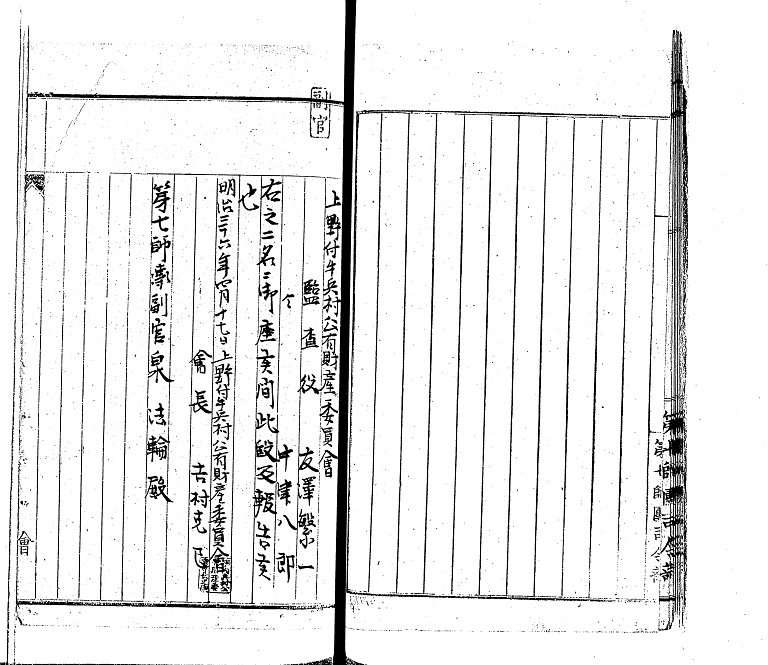 副官
上野付牛兵村公有財産委員會
監査役 友澤繁一
仝 中津八郎
右之二名ニ御座候間此段及報告候
也
明治三十六年四月十七日 上野付牛兵村公有財産委員會
會長 吉村克己
第七師團副官泉 法輪殿
會
第七師團司令部